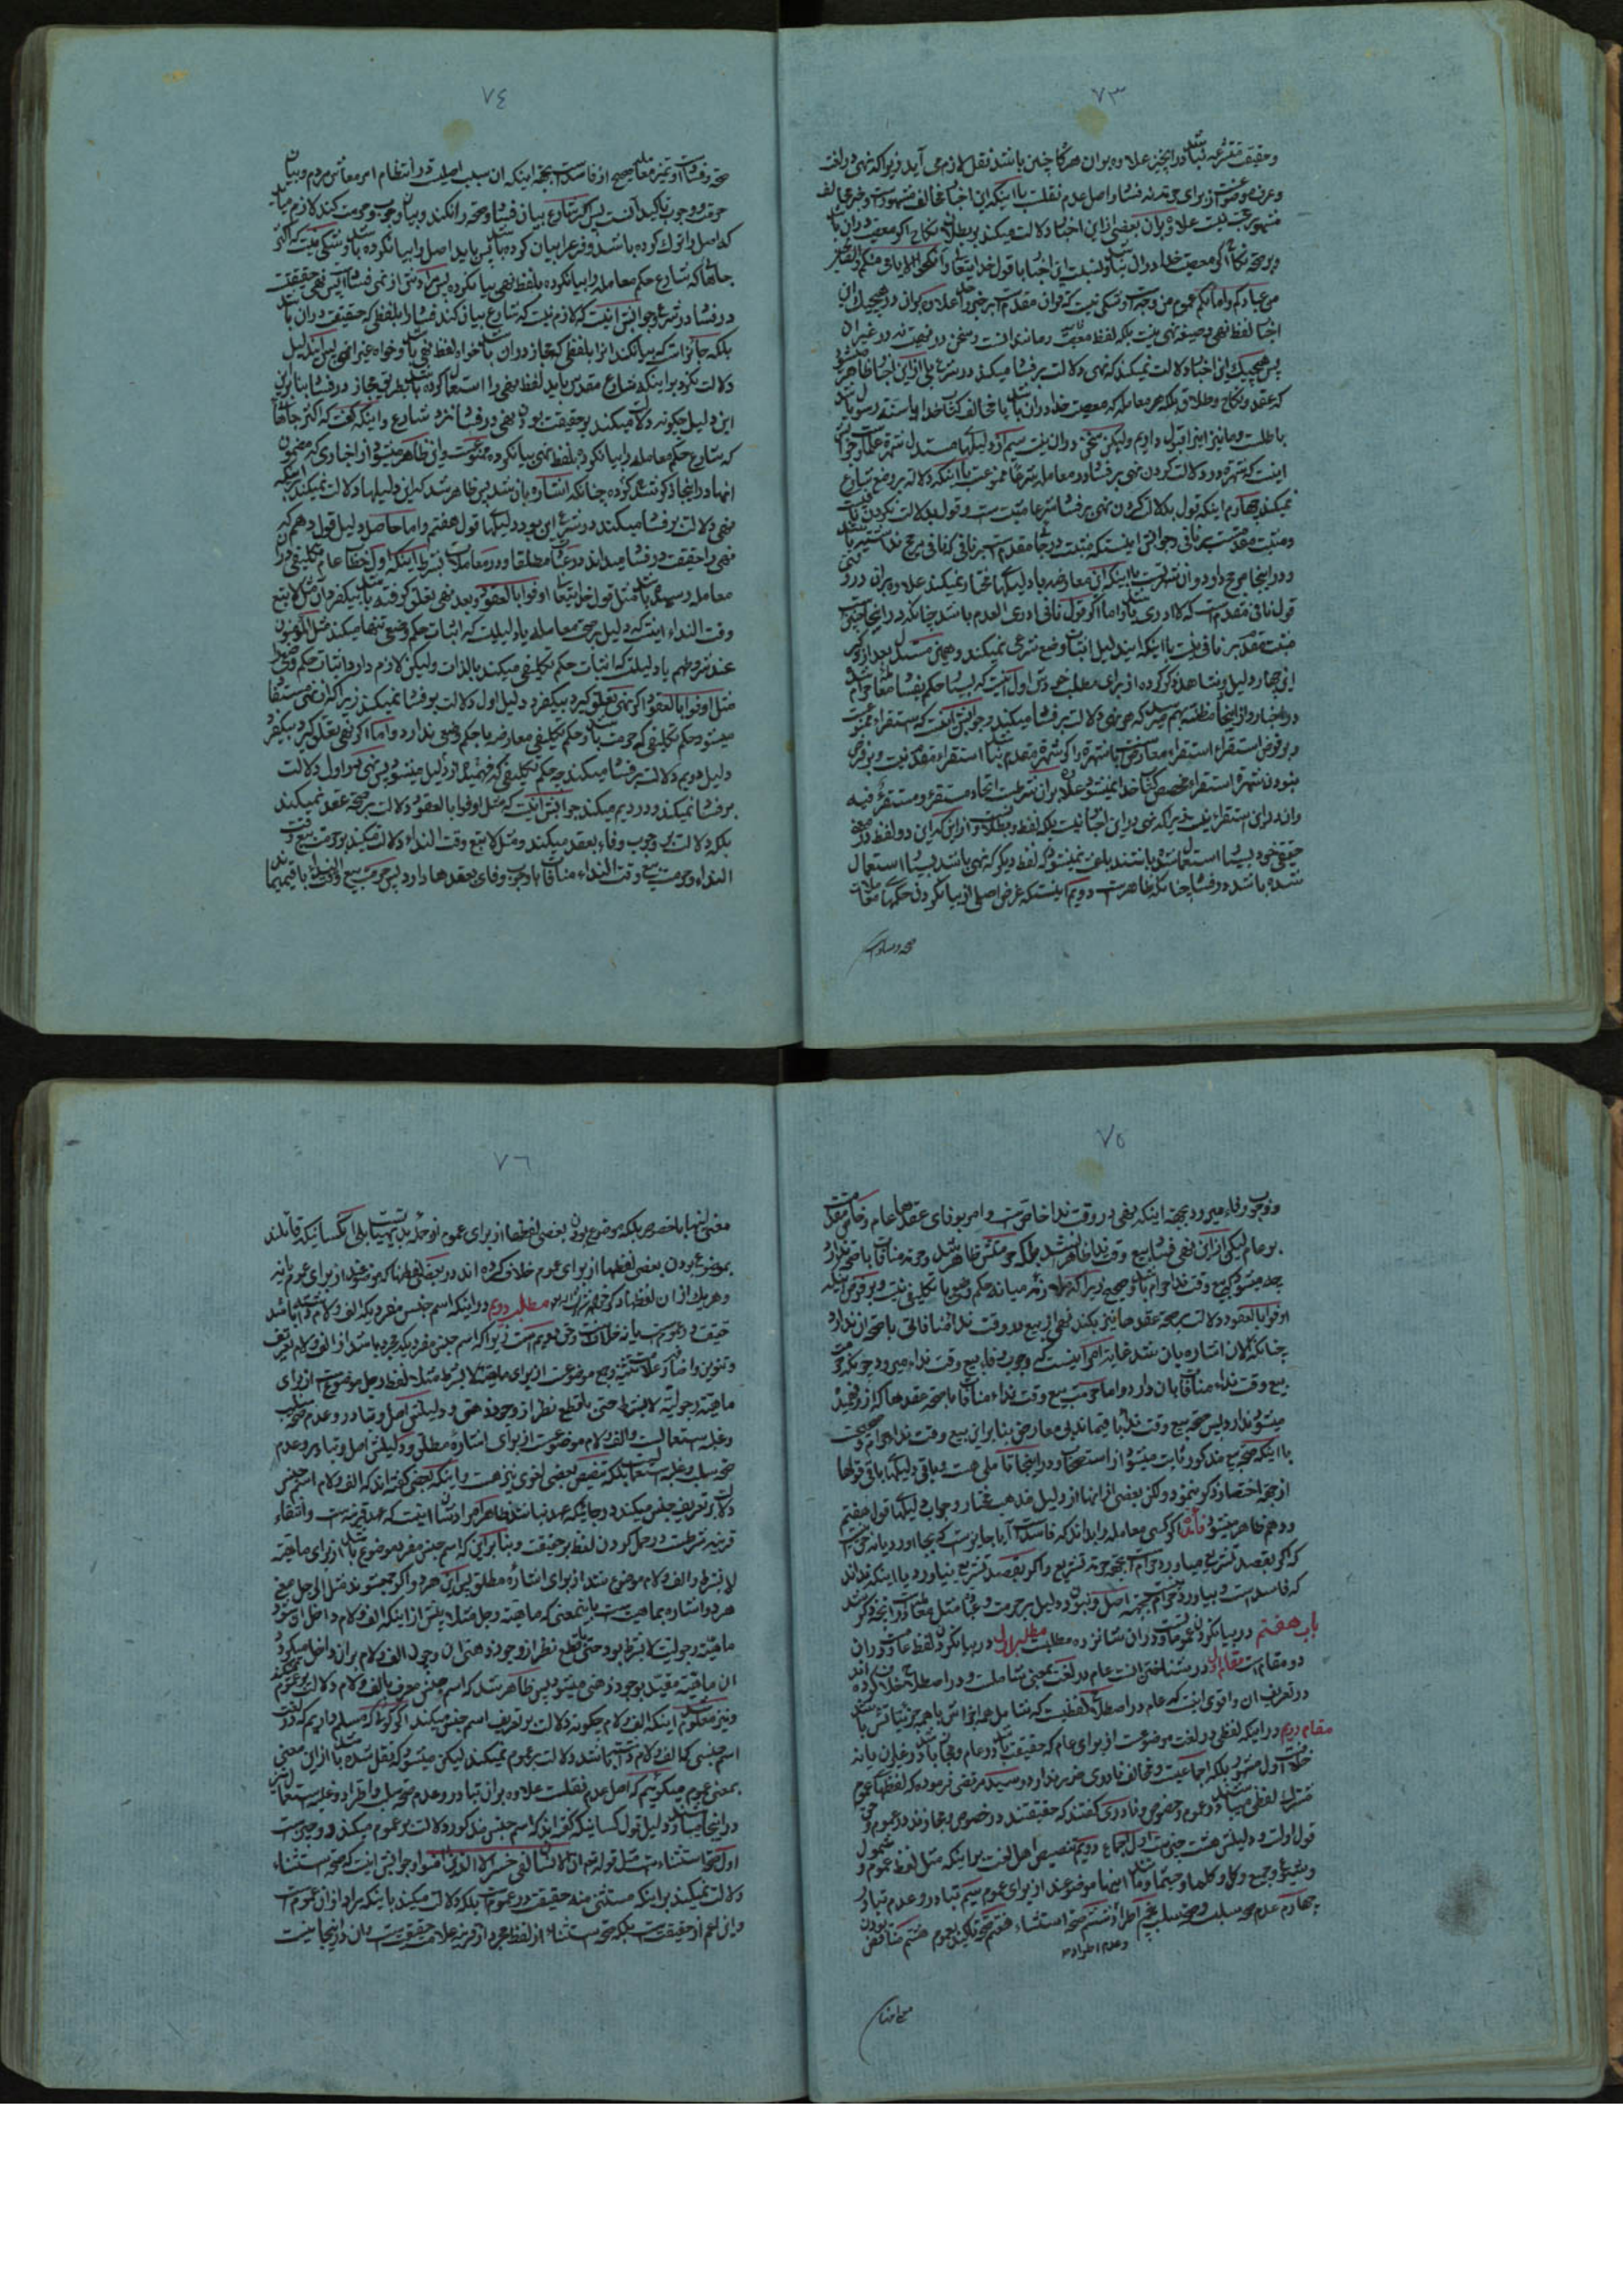 ٧٣
وحقیقت متشرعه
وعرف موضوع از برای فساد واصل عدم نقلست با اینکه این اخبار مخالف مشهور است وخبر مخالف
مشهور حجت نیست علاوه بران بعضی از این اخبار دلالت میکند بر بطلان نکاح اگر معصیت دران باشد
من عبادکم وامائکم عموم من وجه است وشکی نیست که قران مقدمست بر خبر واحد علاوه بران در هیچیک از این
اخبار لفظ نهی وصیغه نهی نیست بلکه لفظ معصیت ومانند انست وسخن در نهیست نه در غیر ان
پس هیچیک از این اخبار دلالت نمیکند که نهی دلالت بر فساد میکند در شرع بلی از این اخبار ظاهر میشود
که عقد ونکاح وطلاق بلکه هر معامله که معصیت خدا دران باشد یا مخالف کتاب خدا یا سنة رسول باشد
باطلست وما نیز اینرا قبول داریم ولیکن سخن دران نیست سیم از دلیلها مستدل شهرة علما است وجوابش
اینست که شهرة در دلالت کردن نهی بر فساد در معامله شرعا ممنوعست با اینکه دلالة بر وضع شارع
نمیکند چهارم اینکه قول بدلالت کردن نهی بر فساد شرعا مثبت است وقول بدلالت نکردن نافیست
ومثبت مقدمست بر نافی وجوابش اینستکه مثبت در جائی مقدمست بر نافی که نافی مرجح نداشته باشد
ودر اینجا مرجح دارد وان شهرتست با اینکه این معارضه با دلیلهای مختار نمیکند علاوه بران در رد
قول نافی مقدمست که لا ادری باشد واما اگر قول نافی ادری العدم باشد چنانکه در اینجا چنین است
مثبت مقدم بر نافی نیست با اینکه ایندلیل اثبات وضع شرعی نمیکند وهمین مستدل بعد از ذکر
این چهار دلیل دو شاهد ذکر کرده از برای مطلب خود اول انست که بسیار حکم بفساد معامله حرام شده
در اخبار واز اینجا مظنه بهم میرسد که هر نهی دلالت بر فساد میکند وجوابش اینست که استقراء ممنوعست
وبر فرض استقراء استقراء معارض با شهرة است واگر شهرة مقدم نباشد استقراء مقدم نیست وبر فرض
نبودن شهرة استقراء مخصص کتاب خدا نمیشود علاوه بران شرطست اتحاد مستقرء ومستقرء فیه
واندر این استقراء نیست زیرا که نهی در این اخبار نیست بلکه لفظ بطلان واز اینکه این دو لفظ در معنی
حقیقی خود بسیار استعمال شده باشند باعث نمیشود که لفظ دیگر که نهی باشد بسیار استعمال
شده باشد در فساد چنانکه ظاهر است دویم اینستکه غرض اصلی از بیانکردن حکمهای معاملات
صحة وفساد است
٧٤
صحة وفساد است وتمیز معامله صحیح از فاسد است بجهة اینکه ان سبب اصلیست در انتظام امر معاش مردم وبیان
حرمت ووجوب تاکید انست پس اگر شارع بیان فساد وصحة را نکند وبیان وجوب وحرمت کند لازم میاید
که اصل را ترک کرده باشد وفرع را بیان کرده باشد پس باید اصل را بیانکرده باشد وشکی نیست که اکثر
جاهائی که شارع حکم معامله را بیانکرده بلفظ نهی بیانکرده پس مرادش از نهی فساد است پس نهی حقیقت
در فساد در شرع وجوابش اینست که لازم نیست که شارع بیان کند فساد را بلفظی که حقیقت دران باشد
بلکه جایز است که بیانکند انرا بلفظی که مجاز دران باشد خواه لفظ نهی باشد وخواه غیر ان پس ایندلیل
دلالت نکرد بر اینکه شارع مقدس باید لفظ نهی را استعمال کرده باشد بطریق مجاز در فساد بنا بر این
این دلیل چگونه دلالت میکند بر حقیقت بودن نهی در فساد نزد شارع واینکه گفت که اکثر جاهائی
که شارع حکم معامله را بیانکرده بلفظ نهی بیانکرده ممنوعست واین ظاهر میشود از اخباری که مضمون
انها در اینجا ذکر شده چنانکه اشاره بان شد پس ظاهر شد که این دلیلها دلالت نمیکند بر اینکه
نهی دلالت بر فساد میکند در شرع این بود دلیلهای قول هفتم واما حاصل دلیل قول دهم که
نهی را حقیقت در فساد میداند در عبادات مطلقا ودر معاملات بشرط اینکه اول خطاب عام تکلیفی در ان
معامله رسیده باشد مثل قول خدایتعالی اوفوا بالعقود وبعد نهی تعلق گرفته باشد بیکفرد ان مثل لا تبع
وقت النداء اینست که دلیل بر صحت معامله یا دلیلیست که اثبات حکم وضعی تنها میکند مثل المؤمنون
عند شروطهم یا دلیلیست که اثبات حکم تکلیفی میکند بالذات ولیکن لازم دارد اثبات حکم وضعی را
مثل اوفوا بالعقود اگر نهی تعلق گیرد بیکفرد دلیل اول دلالت بر فساد نمیکند زیرا که از نهی مستفاد
میشود حکم تکلیفی که حرمت باشد وحکم تکلیفی معارضه با حکم وضعی ندارد واما اگر نهی تعلق گیرد بیکفرد
دلیل دویم دلالت بر فساد میکند چه حکم تکلیفی که فهمیده از دلیل میشود پس نهی در اول دلالت
بر فساد نمیکند ودر دویم میکند جوابش اینست که مثل اوفوا بالعقود دلالت بر صحة عقد نمیکند
بلکه دلالت بر وجوب وفاء بعقد میکند ومثل لا تبع وقت النداء دلالت میکند بر حرمت بیع وقت
النداء وحرمت بیع وقت النداء منافات با وجوب وفای بعقدها دارد پس حرمت بیع وقت النداء باقیماند
٧٥
ووجوب وفاء میرود بجهة اینکه نهی در وقت ندا خاص است وامر بوفای عقدها عام وخاص مقدمست
بر عام لیکن از این نهی فساد بیع وقت ندا ظاهر نشد بلکه حرمتش ظاهر شد وحرمة منافات با صحة ندارد
چه میشود که بیع وقت ندا حرام باشد وصحیح زیرا که ملازمه میانه حکم وضعی با تکلیفی نیست وبر فرض اینکه
اوفوا بالعقود دلالت بر صحة عقدها نیز بکند نهی از بیع در وقت ندا منافاتی با صحة ان ندارد
چنانکه الان اشاره بان شد غایة امر اینست که وجوب وفاء ببیع وقت نداء میرود چونکه حرمت
بیع وقت نداء منافات بان دارد واما حرمت بیع وقت نداء منافات با صحة عقدها که از او فهمیده
میشود ندارد پس صحة بیع وقت ندا باقیماند بی معارض بنا بر این بیع وقت ندا حرام وصحیحست
با اینکه صحة بیع مذکور ثابت میشود از استصحاب ودر اینجا تاملی هست وباقی دلیلهای باقی قولها
از جهة اختصار ذکر ننمود ولکن بعضی از انها از دلیل مذهب مختار وجواب دلیلهای قول هفتم
ودهم ظاهر میشود فائدة اگر کسی معامله را بداند که فاسد است آیا جایز است که بجا اورد یا نه حق اینست
که اگر بقصد تشریع میاورد حرام است بجهة حرمة تشریع واگر بقصد تشریع نیاورد یا اینکه نداند
که فاسد است وبیاورد حرام نیست بجهة اصل ونبودن دلیل بر حرمت
باب هفتم در بیانکردن عمومات ودران شانزده مطلبست مطلب اول در بیانکردن لفظ عامست ودران
دو مقام است مقام اول در شناختن انست عام در لغت بمعنی شاملست ودر اصطلاح خلاف کرده اند
در تعریف ان واقوی اینست که عام در اصطلاح لفظیست که شامل همه افرادش یا همه جزئیاتش باشد
مقام دویم در اینکه لفظی در لغت موضوعست از برای عام که حقیقت باشد در عام ومجاز باشد در غیر ان یا نه
خلاف است اول مشهور بلکه اجماعیست ومخالف نادری ضرر ندارد وسید مرتضی فرموده که لفظهای عموم
مشترک لفظی میباشند در عموم وخصوص ونادری گفتند که حقیقتند در خصوص ومجازند در عموم وحق
قول اولست ودلیلش هشت چیز است اول اجماع دویم تنصیص اهل لغت بر اینکه مثل لفظ عموم وشمول
وشیوع وجمیع وکل وکلما وحیثما ومانند اینها موضوعند از برای عموم سیم تبادر وعدم تبادر
چهارم عدم صحة سلبست وصحة سلب پنجم اطراد وعدم اطراد ششم صحة استثناء هفتم صحة تاکید بعموم هشتم مناقض بودن
٧٦
معنی انها با خصوص بلکه موضوع بودن بعضی لفظها از برای عموم از جمله بدیهیاتست بلی کسانیکه قائلند
بموضوع بودن بعضی لفظها از برای عموم خلاف کرده اند در بعضی لفظها که موضوعند از برای عموم یا نه
وهر یک از ان لفظها ذکر خواهد شد مطلب دویم در اینکه اسم جنس مفرد یکه الف ولام داشته باشد
حقیقت در عموم است یا نه خلافست وحق دویم است زیرا که اسم جنس مفرد یکه مجرد باشد از الف ولام تعریف
وتنوین واضافه وعلامت تثنیه وجمع موضوعست از برای ماهیة لا بشرط مثلا لفظ رجل موضوعست از برای
ماهیة رجولیة لا بشرط حتی با قطع نظر از وجود ذهنی ودلیلش اصل وتبادر وعدم صحة سلب
وغلبه استعمالست والف ولام موضوعست از برای اشاره مطلق ودلیلش اصل وتبادر وعدم
صحة سلب وغلبه استعمال بلکه تنصیص بعضی لغوی نیز هست واینکه بعضی گفته اند که الف ولام اسم جنس
دلالت بر تعریف جنس میکند در جائیکه عهد نباشد ظاهرا مرادشان اینست که عهد قرینه است وانتفاء
قرینه شرطست در حمل کردن لفظ بر حقیقت وبنا بر این که اسم جنس مفرد موضوع باشد از برای ماهیة
لا بشرط والف ولام موضوع باشد از برای اشاره مطلق پس این هر دو اگر جمع شوند مثل الرجل معنی
هر دو اشاره بماهیت است باینمعنی که ماهیة رجل مثلا پیش از اینکه الف ولام داخل او شود
ماهیة رجولیت لا بشرط بود حتی با قطع نظر از وجود ذهنی ان وچون الف ولام بران داخل میگردد
ان ماهیة مقید بوجود ذهنی میشود پس ظاهر شد که اسم جنس معرف بالف ولام دلالت بر عموم نمیکند
ونیز معلوم شد اینکه الف ولام چگونه دلالت بر تعریف اسم جنس میکند اگر گوئی که مسلم داریم که در لغت
اسم جنسی که الف ولام داشته باشد دلالت بر عموم نمیکند لیکن میشود که نقل شده باشد از این معنی
بمعنی عموم میگوئیم که اصل عدم نقلست علاوه بران تبادر وعدم صحة سلب واطراد وغلبه استعمال نیز
در اینجا میباشد ودلیل قول کسانیکه گفته اند که اسم جنس مذکور دلالت بر عموم میکند دو چیز است
اول صحة استثناء است مثل قوله تعالی ان الانسان لفی خسر الا الذین امنوا وجوابش اینست که صحة استثناء
دلالت نمیکند بر اینکه مستثنی منه حقیقت در عموم است بلکه دلالت میکند باینکه مراد از ان عموم است
واین اعم از حقیقت است بلکه صحة استثناء از لفظ مجرد از قرینه علامت حقیقت است وان در اینجا نیست